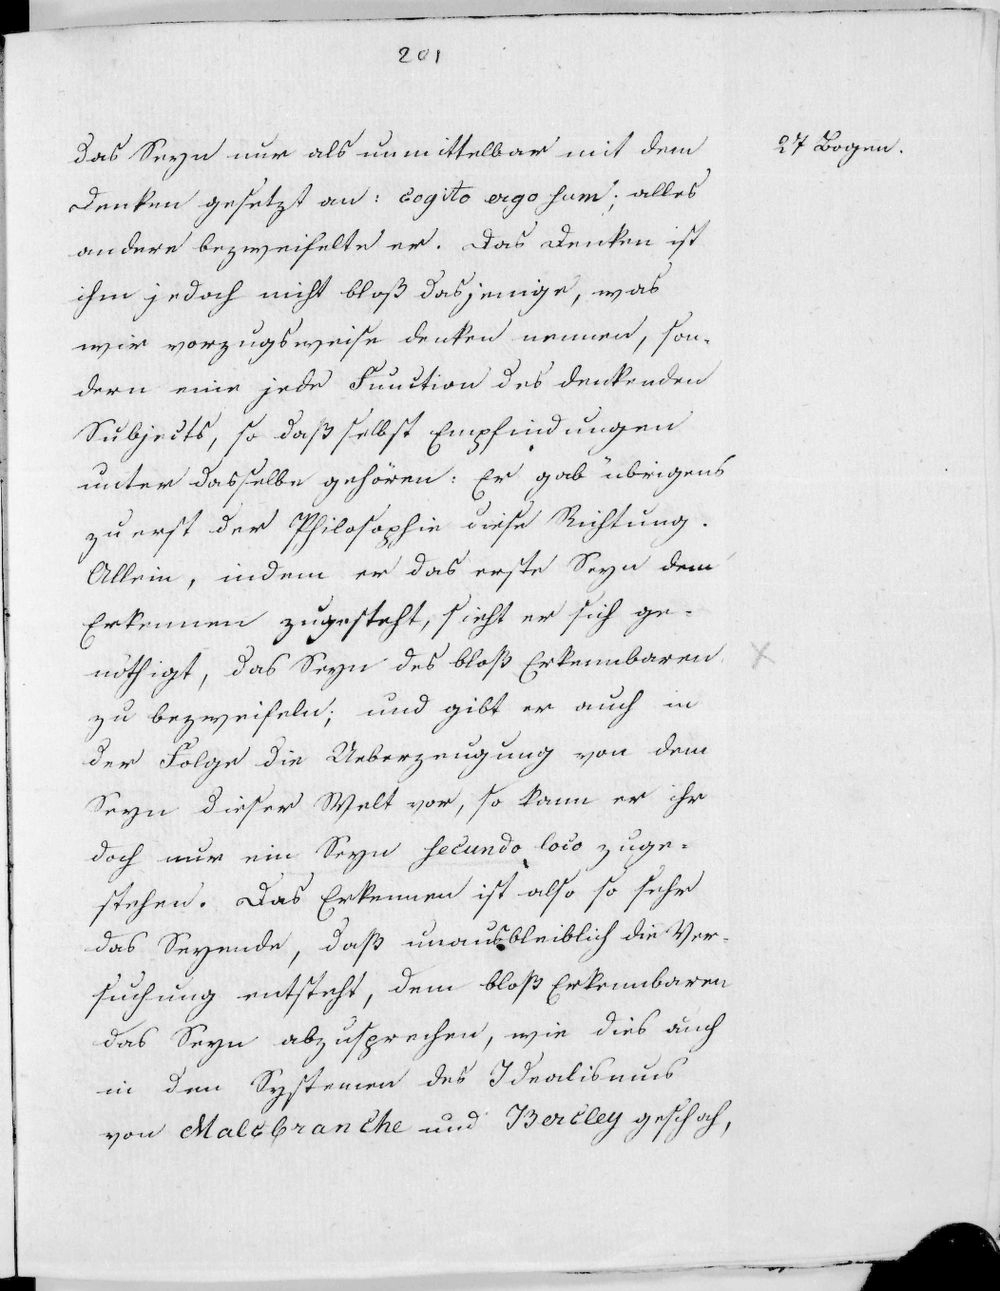 201
27 Bogen.
das Seyn nur als unmittelbar mit dem
Denken gesetzt an: cogito ergo sum; alles
andere bezweifelte er. Das Denken ist
ihm jedoch nicht bloß dasjenige, was
wir vorzugsweise denken nennen, son-
dern eine jede Function des denkenden
Subjects, so daß selbst Empfindungen
unter dasselbe gehören: Er gab übrigens
zuerst der Philosophie diese Richtung.
Allein, indem er das erste Seyn dem
Erkennen zugesteht, sieht er sich ge-
nöthigt, das Seyn des bloß Erkennbaren
zu bezweifeln; und gibt er auch in
der Folge die Ueberzeugung von dem
Seyn dieser Welt vor, so kann er ihr
doch nur ein Seyn secundo loco zuge-
stehen. Das Erkennen ist also so sehr
das Seyende, daß unausbleiblich die Ver-
suchung entsteht, dem bloß Erkennbaren
das Seyn abzusprechen, wie dies auch
in den Systemen des Idealismus
von Malebranche und Bercley geschah,